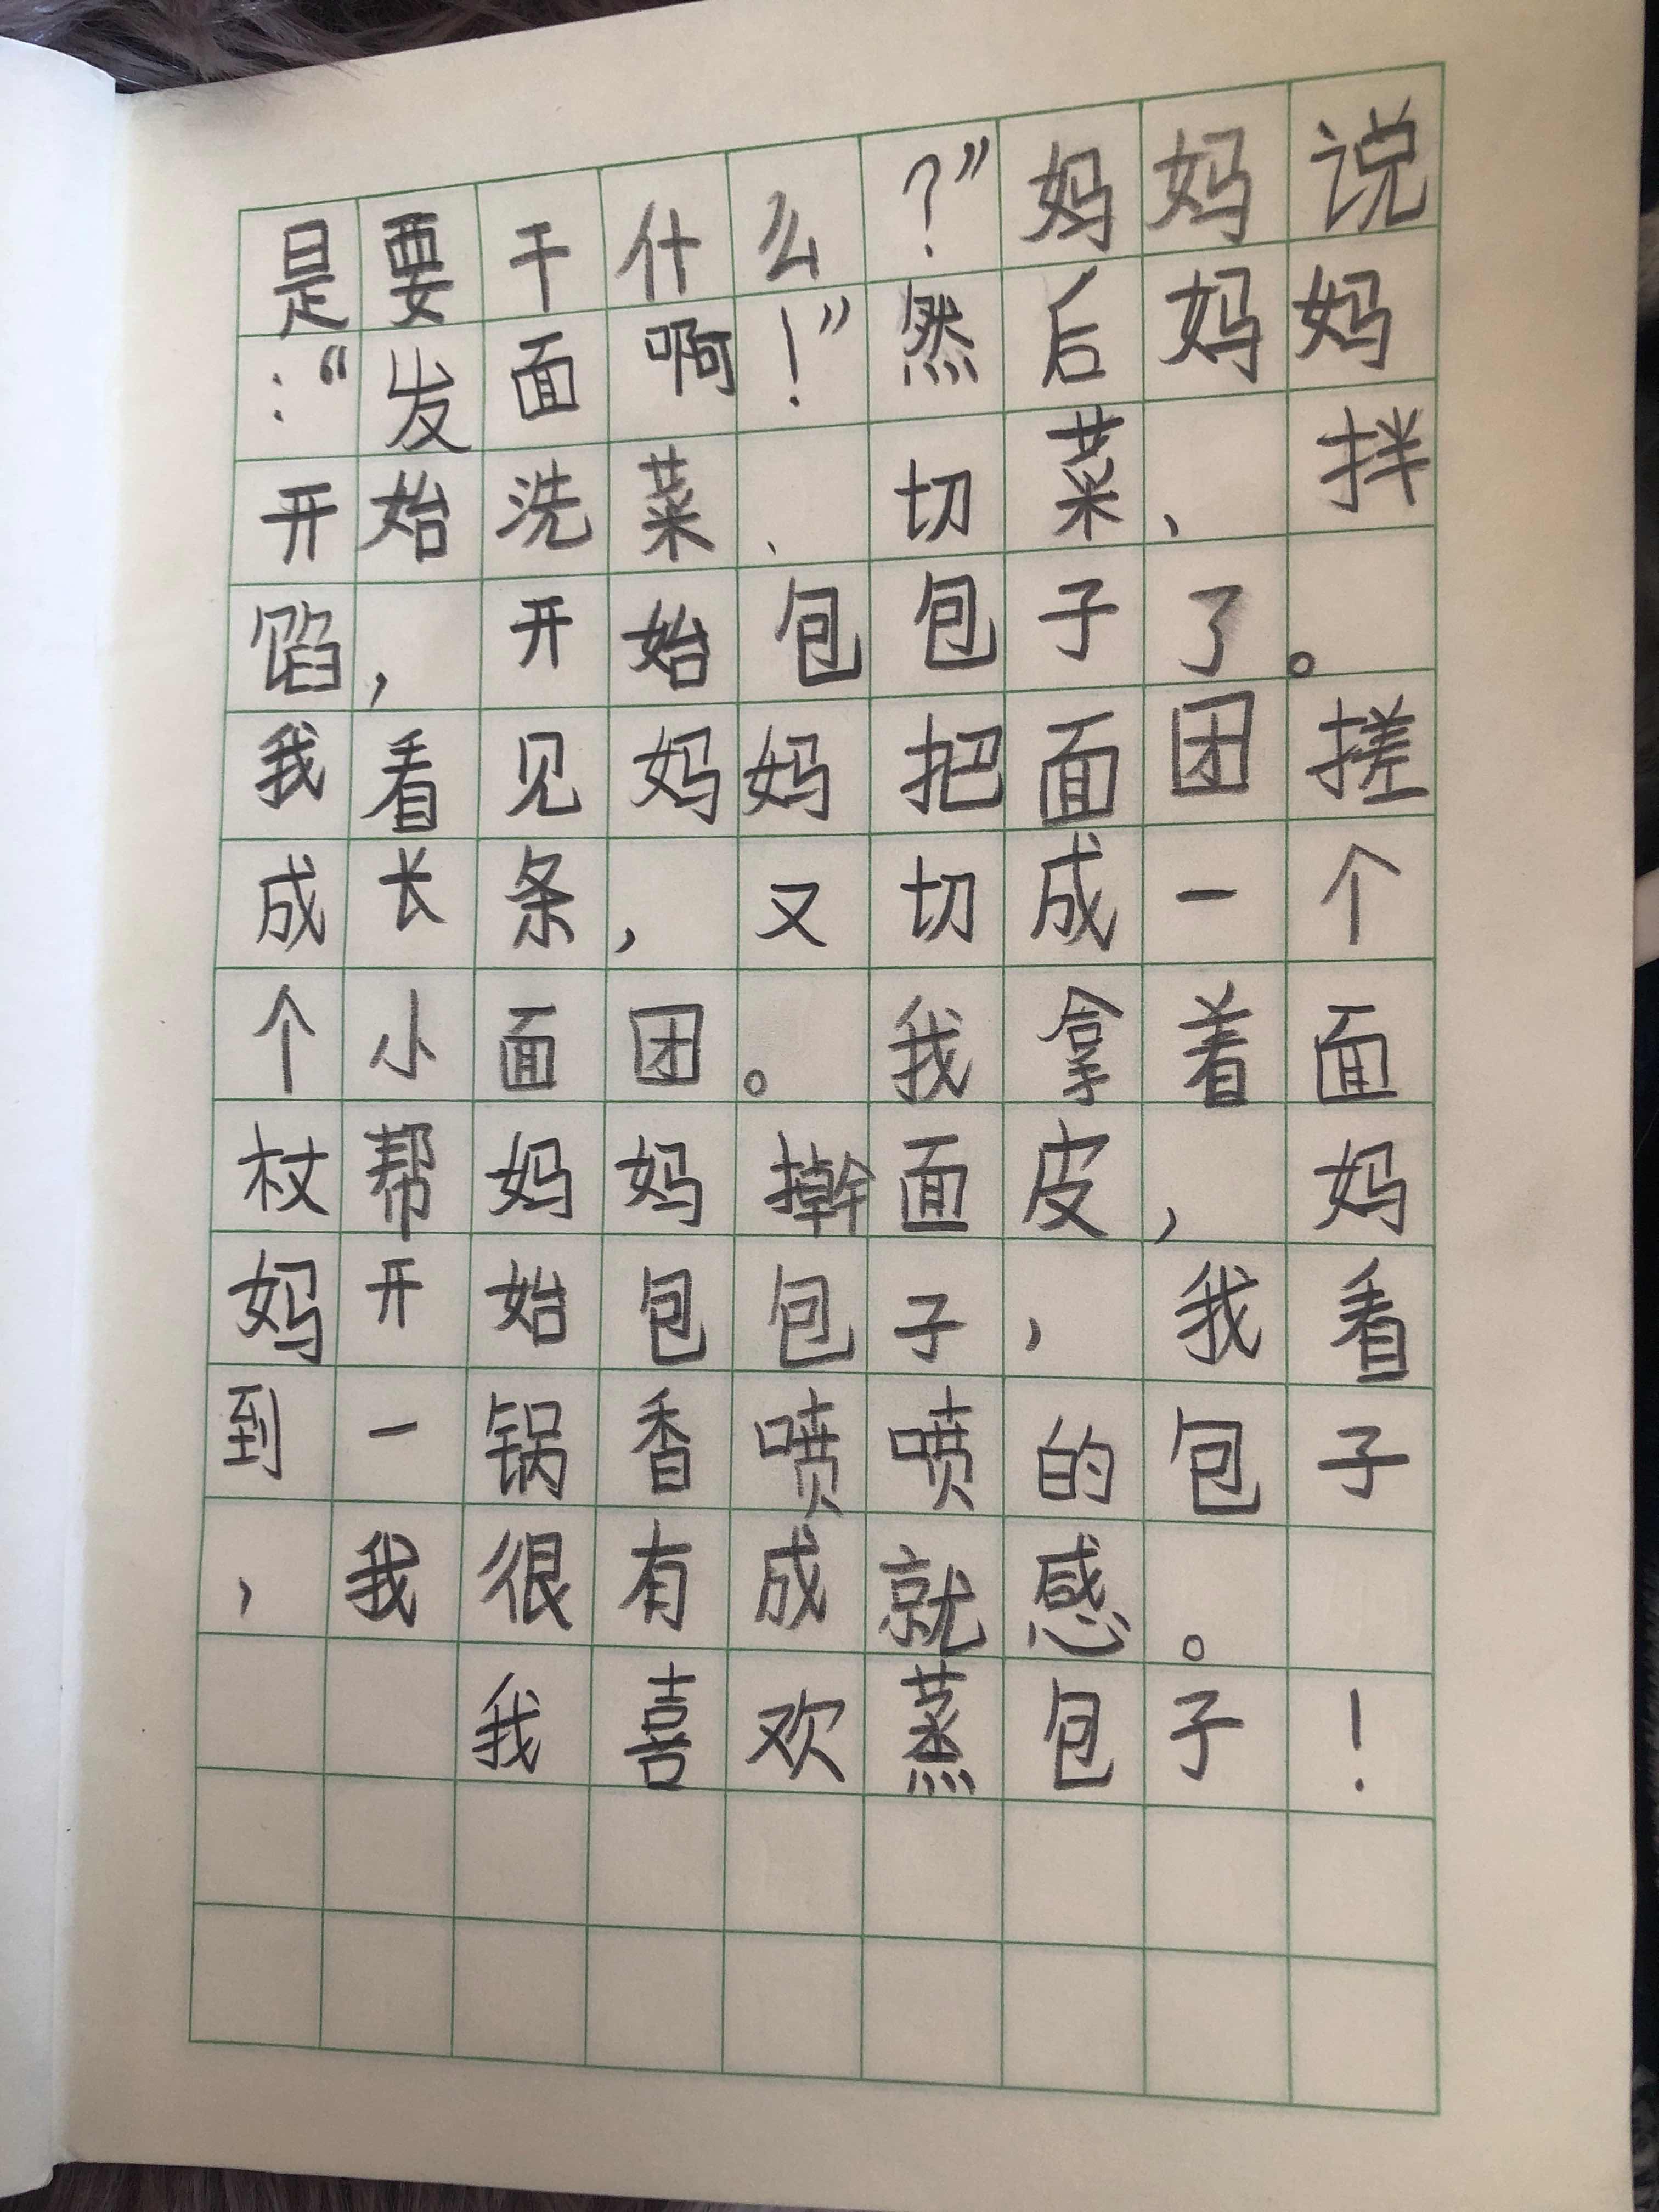 是要干什么？”妈妈说
：“发面啊！”然后妈妈
开始洗菜、切菜、拌
馅，开始包包子了。
我看见妈妈把面团搓
成长条，又切成一个
个小面团。我拿着面
杖帮妈妈擀面皮，妈
妈开始包包子，我看
到一锅香喷喷的包子
，我很有成就感。
我喜欢蒸包子！